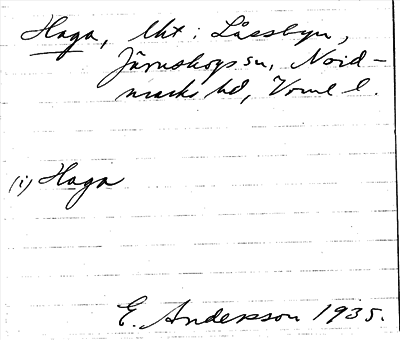 Haga, lht i Låssbyn,
Järnskogs sn, Nord-
marks hd, Vrml l.
(i) Haga
E. Andersson 1935.